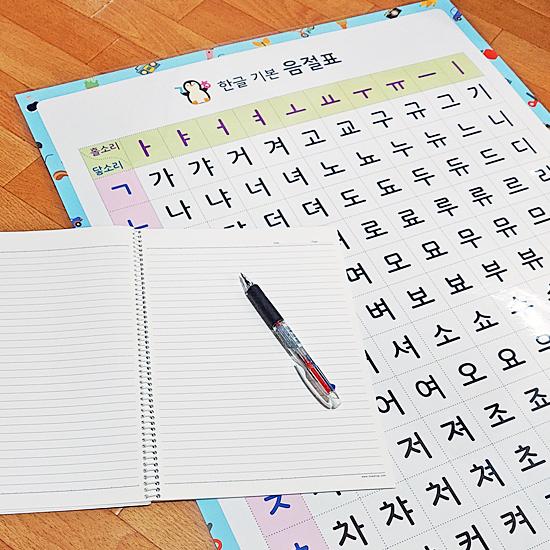 한글 기본 음절표
홀소리 ㅏ ㅑ ㅓ ㅕ ㅗ ㅛ ㅜ ㅠ ㅡ ㅣ
닿소리
ㄱ 가 갸 거 겨 고 교 구 규 그 기
ㄴ 나 냐 너 녀 노 뇨 누 뉴 느 니
더 뎌 도 됴 두 듀 드 디
로 료 루 류 르
며 모 묘 무 뮤 므
벼 보 뵤 부 뷰
셔 소 쇼
어 여 오 요 우
저 져 조 죠
ㅊ 차 챠 처 쳐 초
커 켜